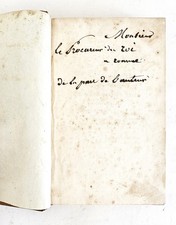 Monsieur
le Procureur du roi
a
de la part de l'auteur